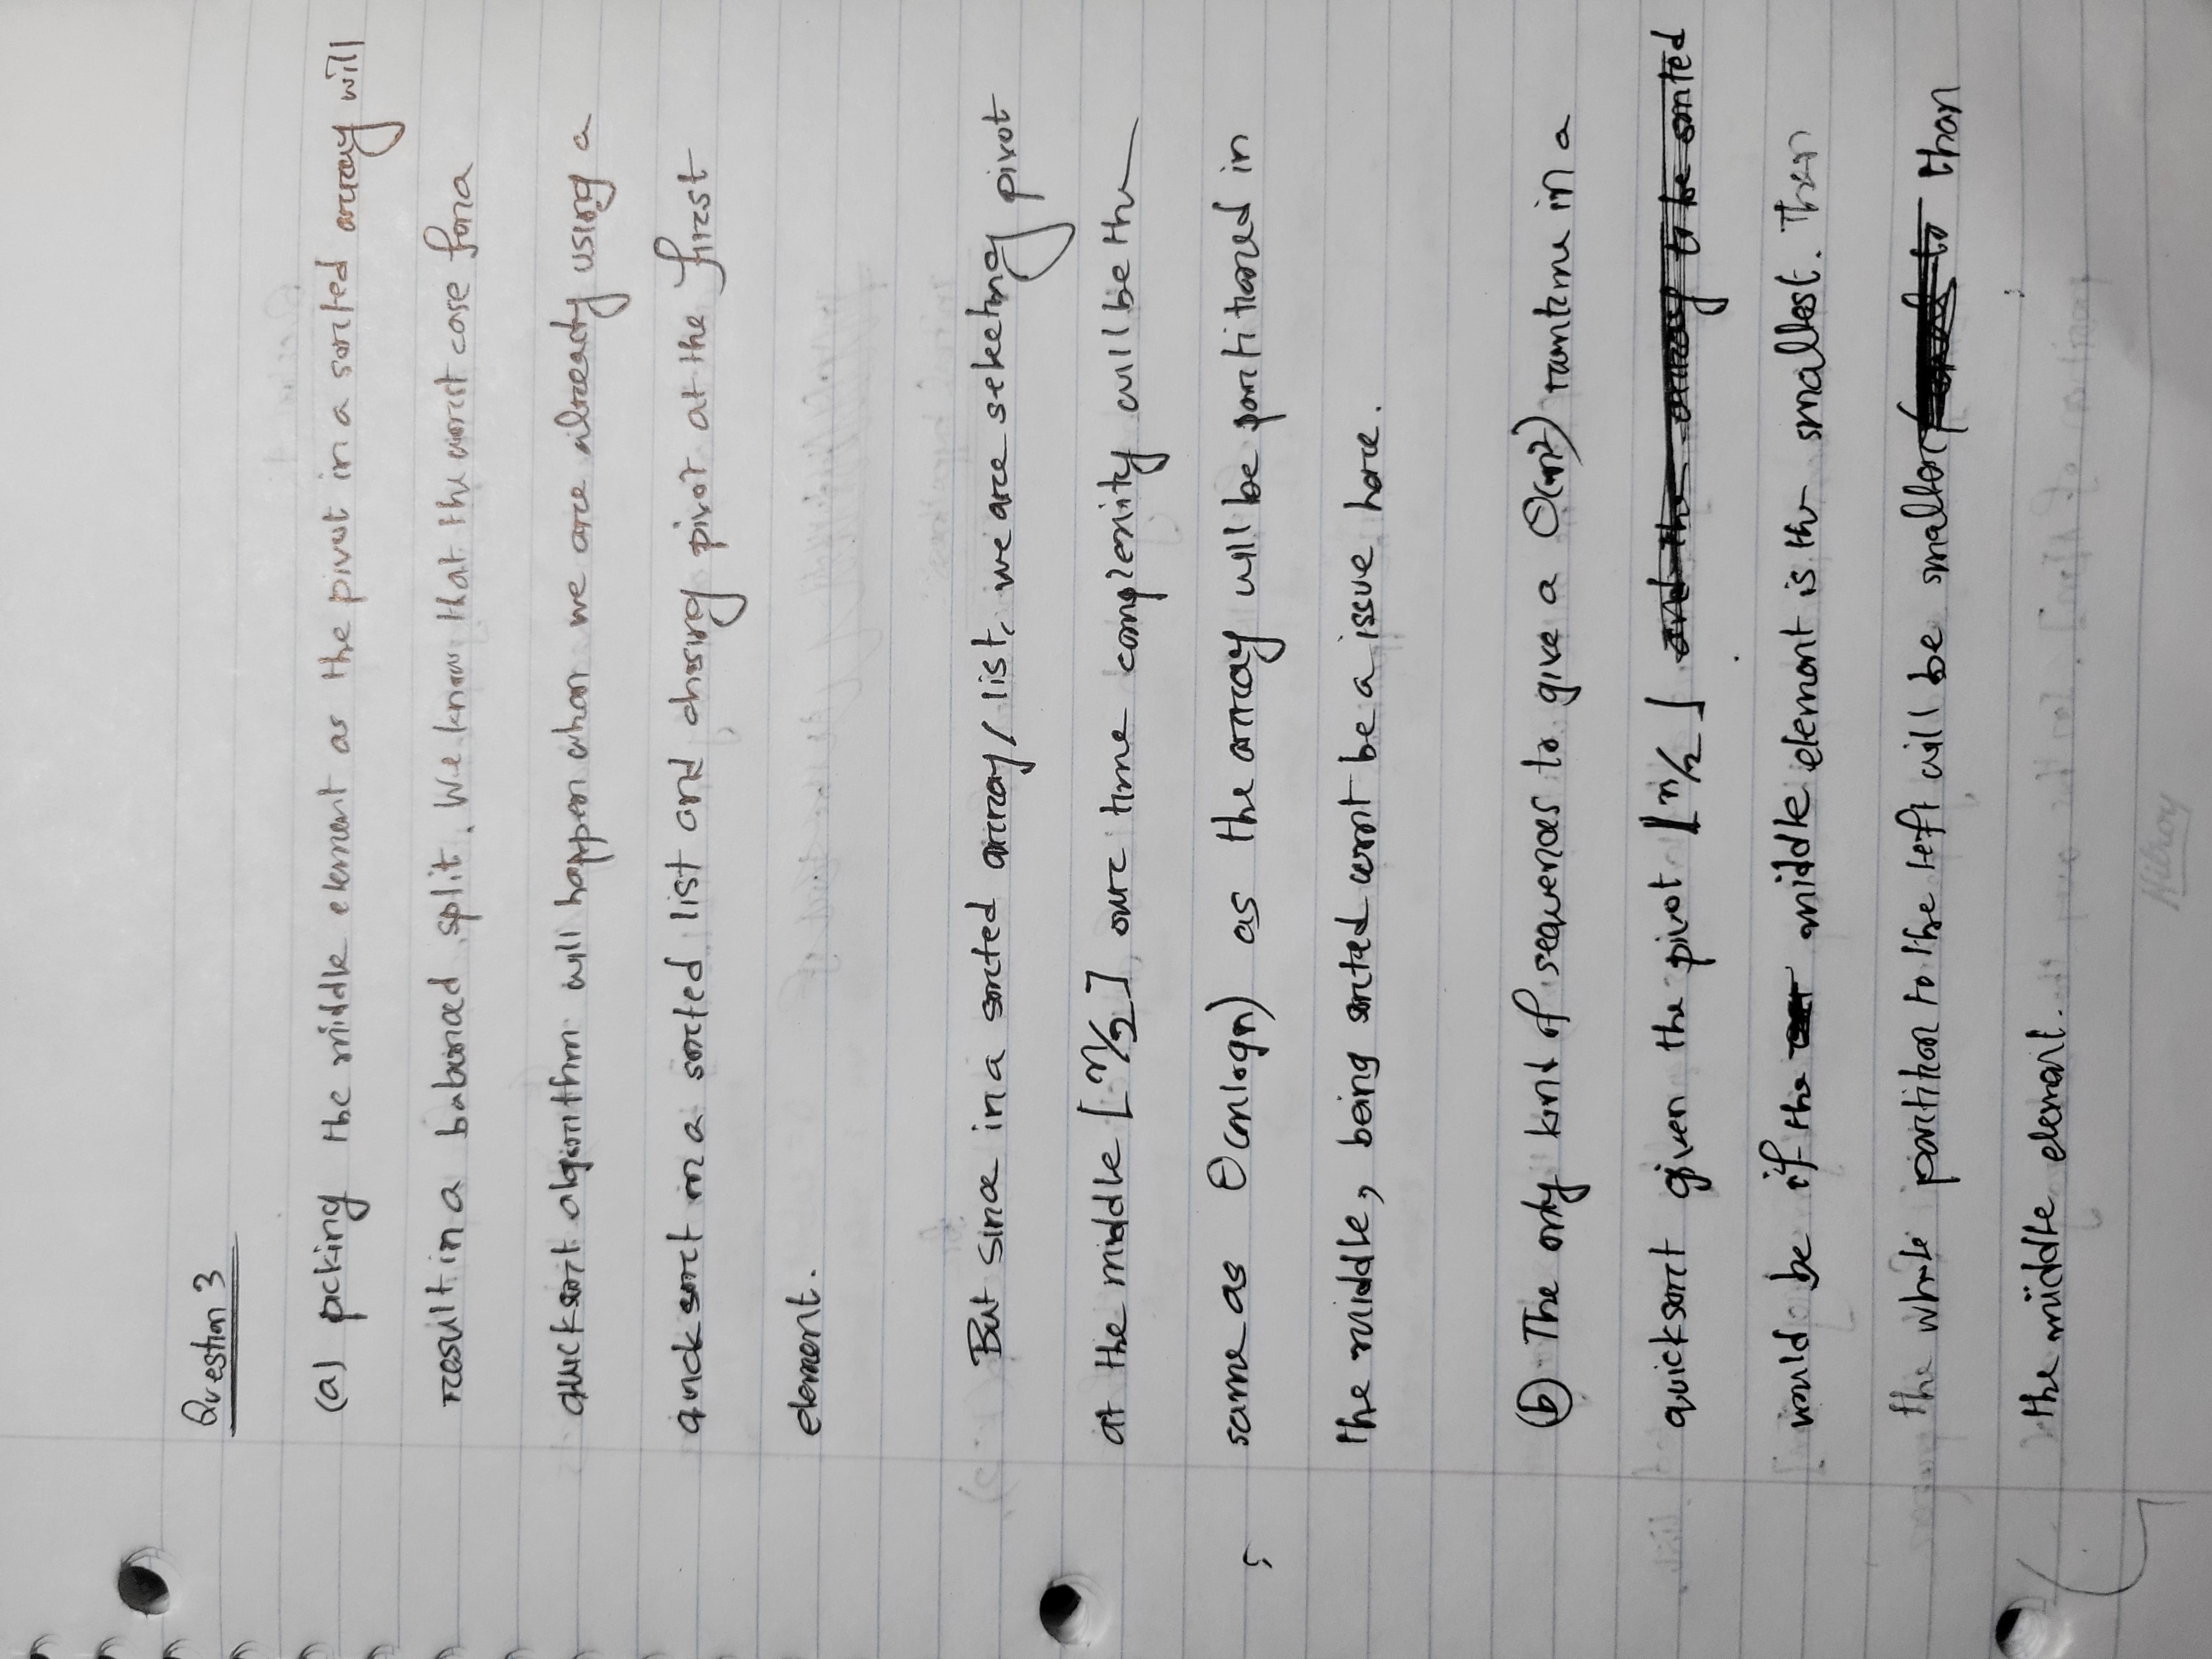 Question 3
(a) picking the middle element as the pivot in a sorted array will
result in a balanced split. We know that the worst case for a
quicksort algorithm will happen when we are already using a
quick sort in a sorted list and chosing pivot at the first
element.
But since in a sorted array / list, we are selecting pivot
at the middle [n/2] our time complexity will be the
same as Θ(nlogn) as the array will be partitioned in
the middle, being sorted wont be a issue here.
(b) The only kind of sequences to give a Θ(n²) runtime in a
quicksort given the pivot ⌊n/2⌋ and the array to be sorted
would be if the middle element is the smallest. Then
the whole partition to the left will be smaller than
the middle element.
Hilroy